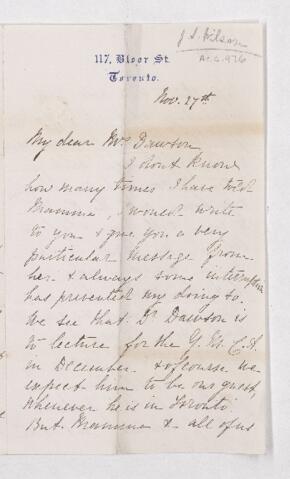 J. S. Wilson
Acc. 976
117, Bloor St.
Toronto.
Nov. 27th
My dear Mrs Dawson
I dont know
how many times I have told
Mamma, I would write
to you & give you a very
particular message from
her & always some interruption
has prevented my doing so.
We see that Dr Dawson is
to lecture for the Y. M. C. A.
in December & of course we
expect him to be our guest,
whenever he is in Toronto.
But Mamma & all of us